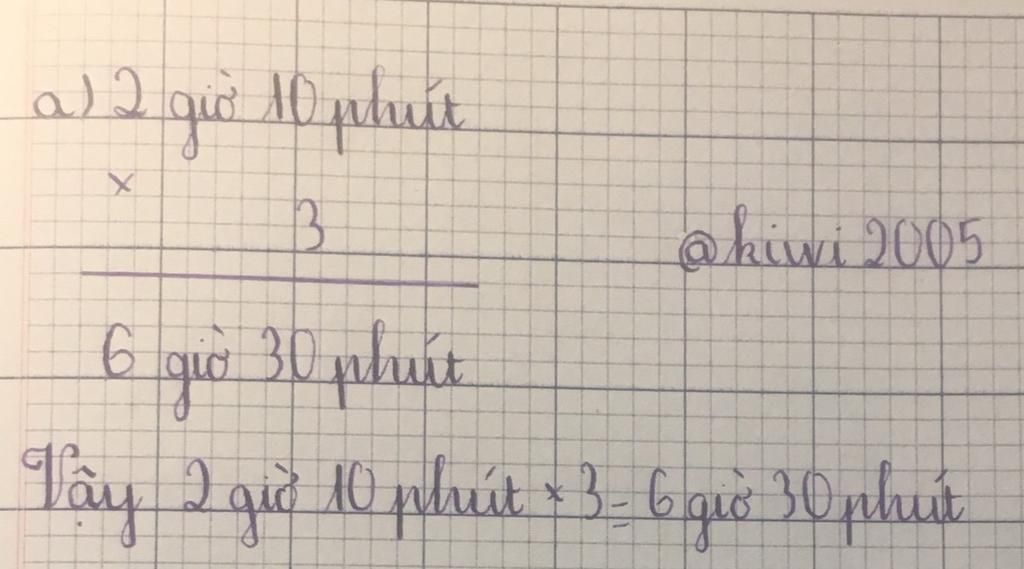 a) 2 giờ 10 phút
×
3
@kiwi 2005
6 giờ 30 phút
Vậy 2 giờ 10 phút × 3 = 6 giờ 30 phút